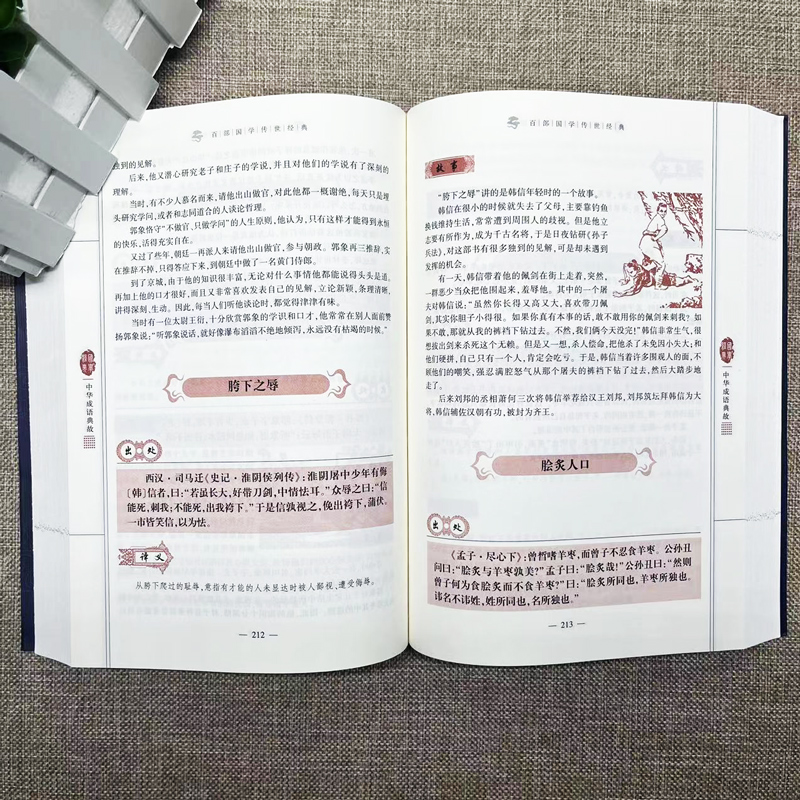 百部国学传世经典
独到的见解。
后来，他又潜心研究老子和庄子的学说，并且对他们的学说有了深刻的
理解。
当时，有不少人慕名而来，请他出山做官，对此他都一概谢绝，每天只是埋
头研究学问，或者和志同道合的人谈论哲理。
郭象恪守“不做官、只做学问”的人生原则，他认为，只有这样才能得到永恒
的快乐，活得充实自在。
又过了些年，朝廷一再派人来请他出山做官，参与朝政。郭象再三推辞，实
在推辞不掉，只得答应下来，到朝廷中做了一名黄门侍郎。
到了京城，由于他的知识很丰富，无论对什么事情他都能说得头头是道，
再加上他的口才很好，而且又非常喜欢发表自己的见解，立论新颖，条理清晰，
讲得深刻、生动。因此，每当人们听他谈论时，都觉得津津有味。
当时有一位太尉王衍，十分欣赏郭象的学识和口才，他常常在别人面前赞
扬郭象说：“听郭象说话，就好像瀑布滔滔不绝地倾泻，永远没有枯竭的时候。”
胯下之辱
出处
西汉·司马迁《史记·淮阴侯列传》：淮阴屠中少年有侮
〔韩〕信者，曰：“若虽长大，好带刀剑，中情怯耳。”众辱之曰：“信
能死，刺我；不能死，出我袴下。”于是信孰视之，俛出袴下，蒲伏。
一市皆笑信，以为怯。
译义
从胯下爬过的耻辱，意指有才能的人未显达时被人鄙视，遭受侮辱。
— 212 —
中华成语典故
百部国学传世经典
故事
“胯下之辱”讲的是韩信年轻时的一个故事。
韩信在很小的时候就失去了父母，主要靠钓鱼
换钱维持生活，常常遭到周围人的歧视。但是他立
志要有所作为，成为千古名将，于是日夜钻研《孙子
兵法》，对这部书有很多独到的见解，可是却未遇到
发挥的机会。
有一天，韩信带着他的佩剑在街上走着，突然，
一群恶少当众把他围起来，羞辱他。其中的一个屠
夫对韩信说：“虽然你长得又高又大，喜欢带刀佩
剑，其实你胆子小得很。如果你真有本事的话，敢不敢用你的佩剑来刺我？如
果不敢，那就从我的裤裆下钻过去。不然，我们俩今天没完！”韩信非常生气，很
想拔出剑来杀死这个无赖。但是又一想，杀人偿命，把他杀了未免因小失大；和
他们硬拼，自己只有一个人，肯定会吃亏。于是，韩信当着许多围观人的面，不
顾他们的嘲笑，强忍满腔怒气从那个屠夫的裤裆下钻了过去，然后大踏步地
走了。
后来刘邦的丞相萧何三次将韩信举荐给汉王刘邦，刘邦筑坛拜韩信为大
将，韩信辅佐汉朝有功，被封为齐王。
脍炙人口
出处
《孟子·尽心下》：曾皙嗜羊枣，而曾子不忍食羊枣。公孙丑
问曰：“脍炙与羊枣孰美？”孟子曰：“脍炙哉！”公孙丑曰：“然则
曾子何为食脍炙而不食羊枣？”曰：“脍炙所同也，羊枣所独也。
讳名不讳姓，姓所同也，名所独也。”
— 213 —
中华成语典故